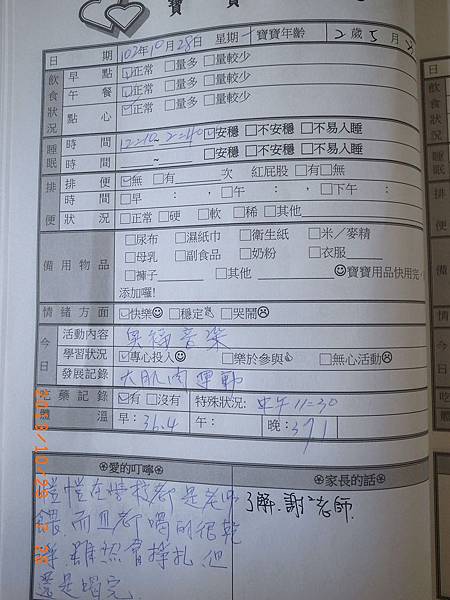 寶 寶
日 期 102年10月28日 星期一 寶寶年齡 2歲5月
飲食狀況 早點 ☑正常 □量多 □量較少
午餐 ☑正常 □量多 □量較少
點心 ☑正常 □量多 □量較少
睡眠 時間 12:10~2:40 ☑安穩 □不安穩 □不易入睡
時間 ~ □安穩 □不安穩 □不易入睡
排便 排便 ☑無 □有 次 紅屁股 □有□無
時間 □早 : , □午 : , □下午 :
狀況 □正常 □硬 □軟 □稀 □其他
備用物品 □尿布 □濕紙巾 □衛生紙 □米/麥精
□母乳 □副食品 □奶粉 □衣服
□褲子 □其他 ☺寶寶用品快用完,
添加囉!
情緒方面 ☑快樂☺ □穩定 □哭鬧☹
今日 活動內容 奧福音樂
學習狀況 ☑專心投入☺ □樂於參與 □無心活動☹
發展記錄 大肌肉運動
吃藥記錄 ☑有 □沒有 特殊狀況: 中午11:30
體溫 早:36.4 午: 晚:37.1
愛的叮嚀
愷愷在學校都是老師
餵,而且都喝的很乾
淨,雖然會掙扎,但
還是喝完.
家長的話
了解.謝謝老師.